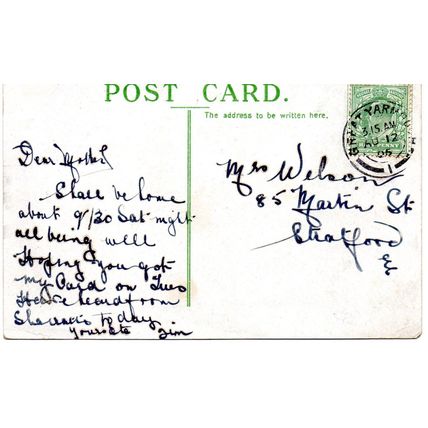 POST CARD.
The address to be written here.
GREAT YARMOUTH
3.15 AM
AU 12
05
1
Dear Mother
Shall be home
about 9/30 Sat night
all being well
Hoping you got
my Card on Tues
Have heard from
to day
Yours etc Jim
Mrs Welson
85 Martin St
Stratford
E